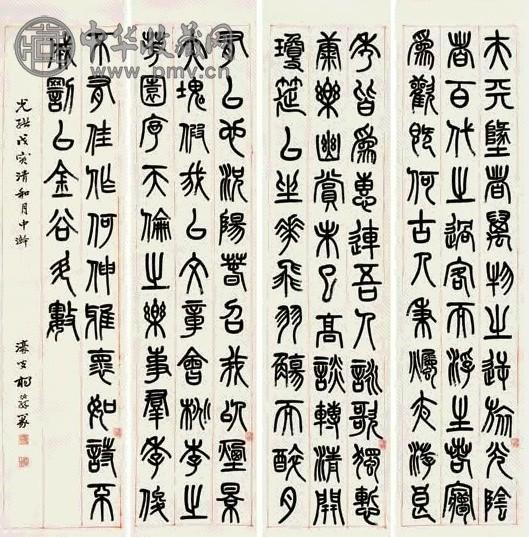 夫天墬者萬物之逆旅光陰
者百代之過客而浮生若夢
為歡幾何古人秉燭夜游良
季皆為惠連吾人詠歌獨慙
康樂幽賞未已高談轉清開
瓊筵以坐華飛羽觴而醉月
有以也況陽春召我以煙景
大塊假我以文章會桃李之
芳園序天倫之樂事羣季俊
不有佳作何伸雅懷如詩不
成罰以金谷酒數
光緒戊寅清和月中澣
濠叟楊沂孫篆
中华收藏网
www.pmv.cn